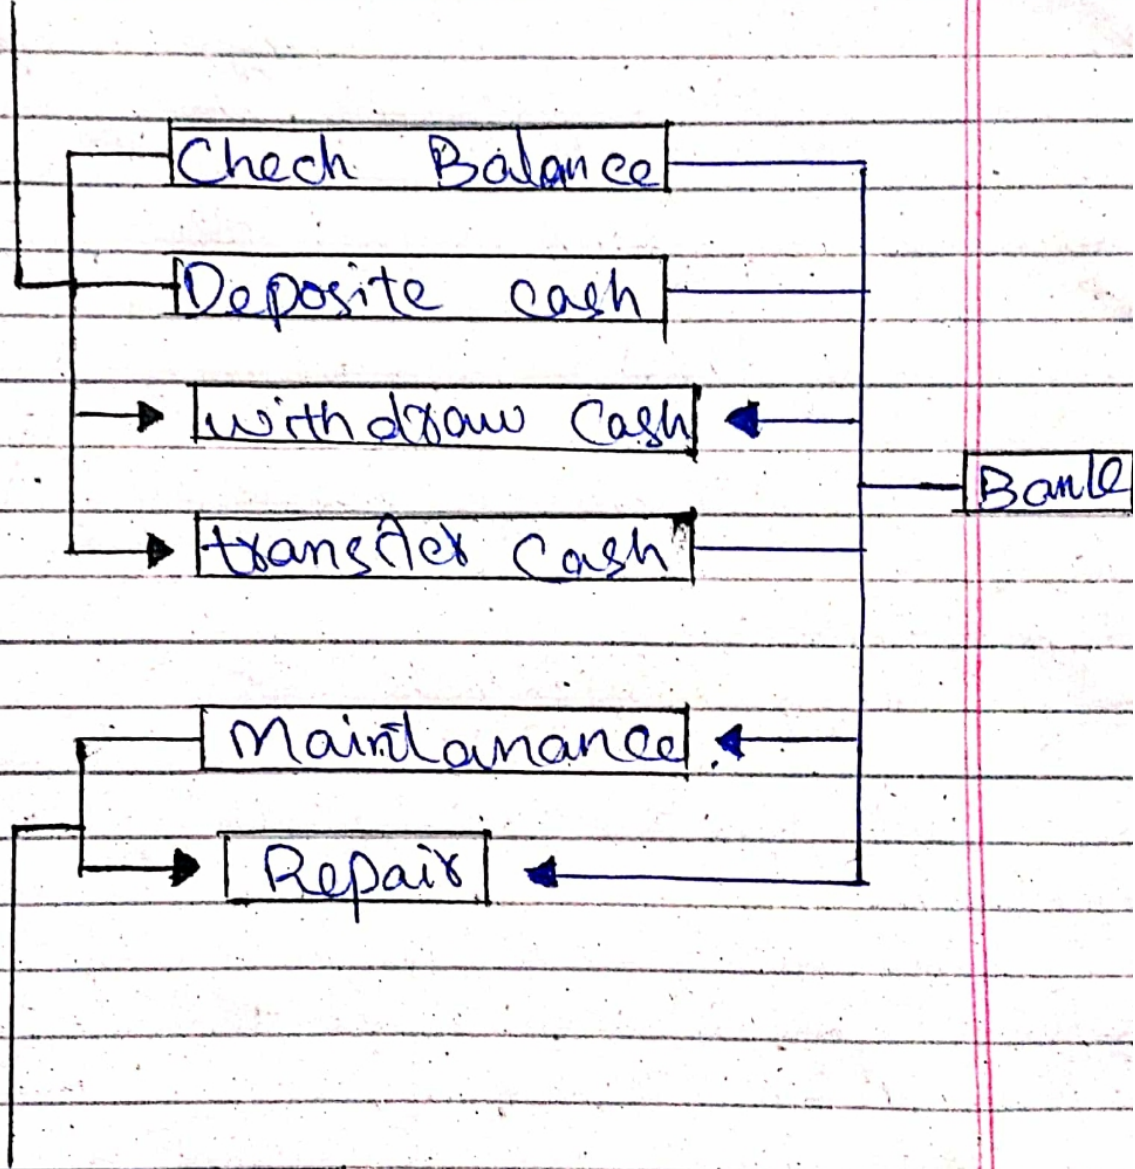 Chech Balance
Deposite cash
withdraw Cash
transfer Cash
Bank
Maintanance
Repair